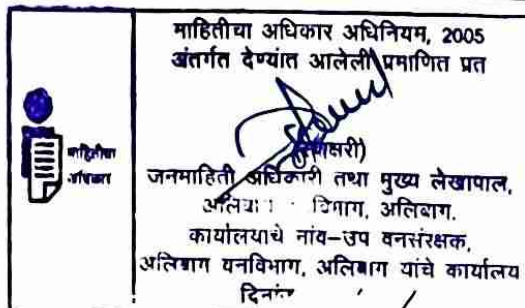 माहितीचा अधिकार अधिनियम, 2005
अंतर्गत देण्यांत आलेली प्रमाणित प्रत
माहितीचा
अधिकार
जनमाहिती अधिकारी तथा मुख्य लेखापाल,
विभाग, अलिबाग.
कार्यालयाचे नांव-उप वनसंरक्षक,
अलिबाग वनविभाग, अलिबाग यांचे कार्यालय
दिनांक